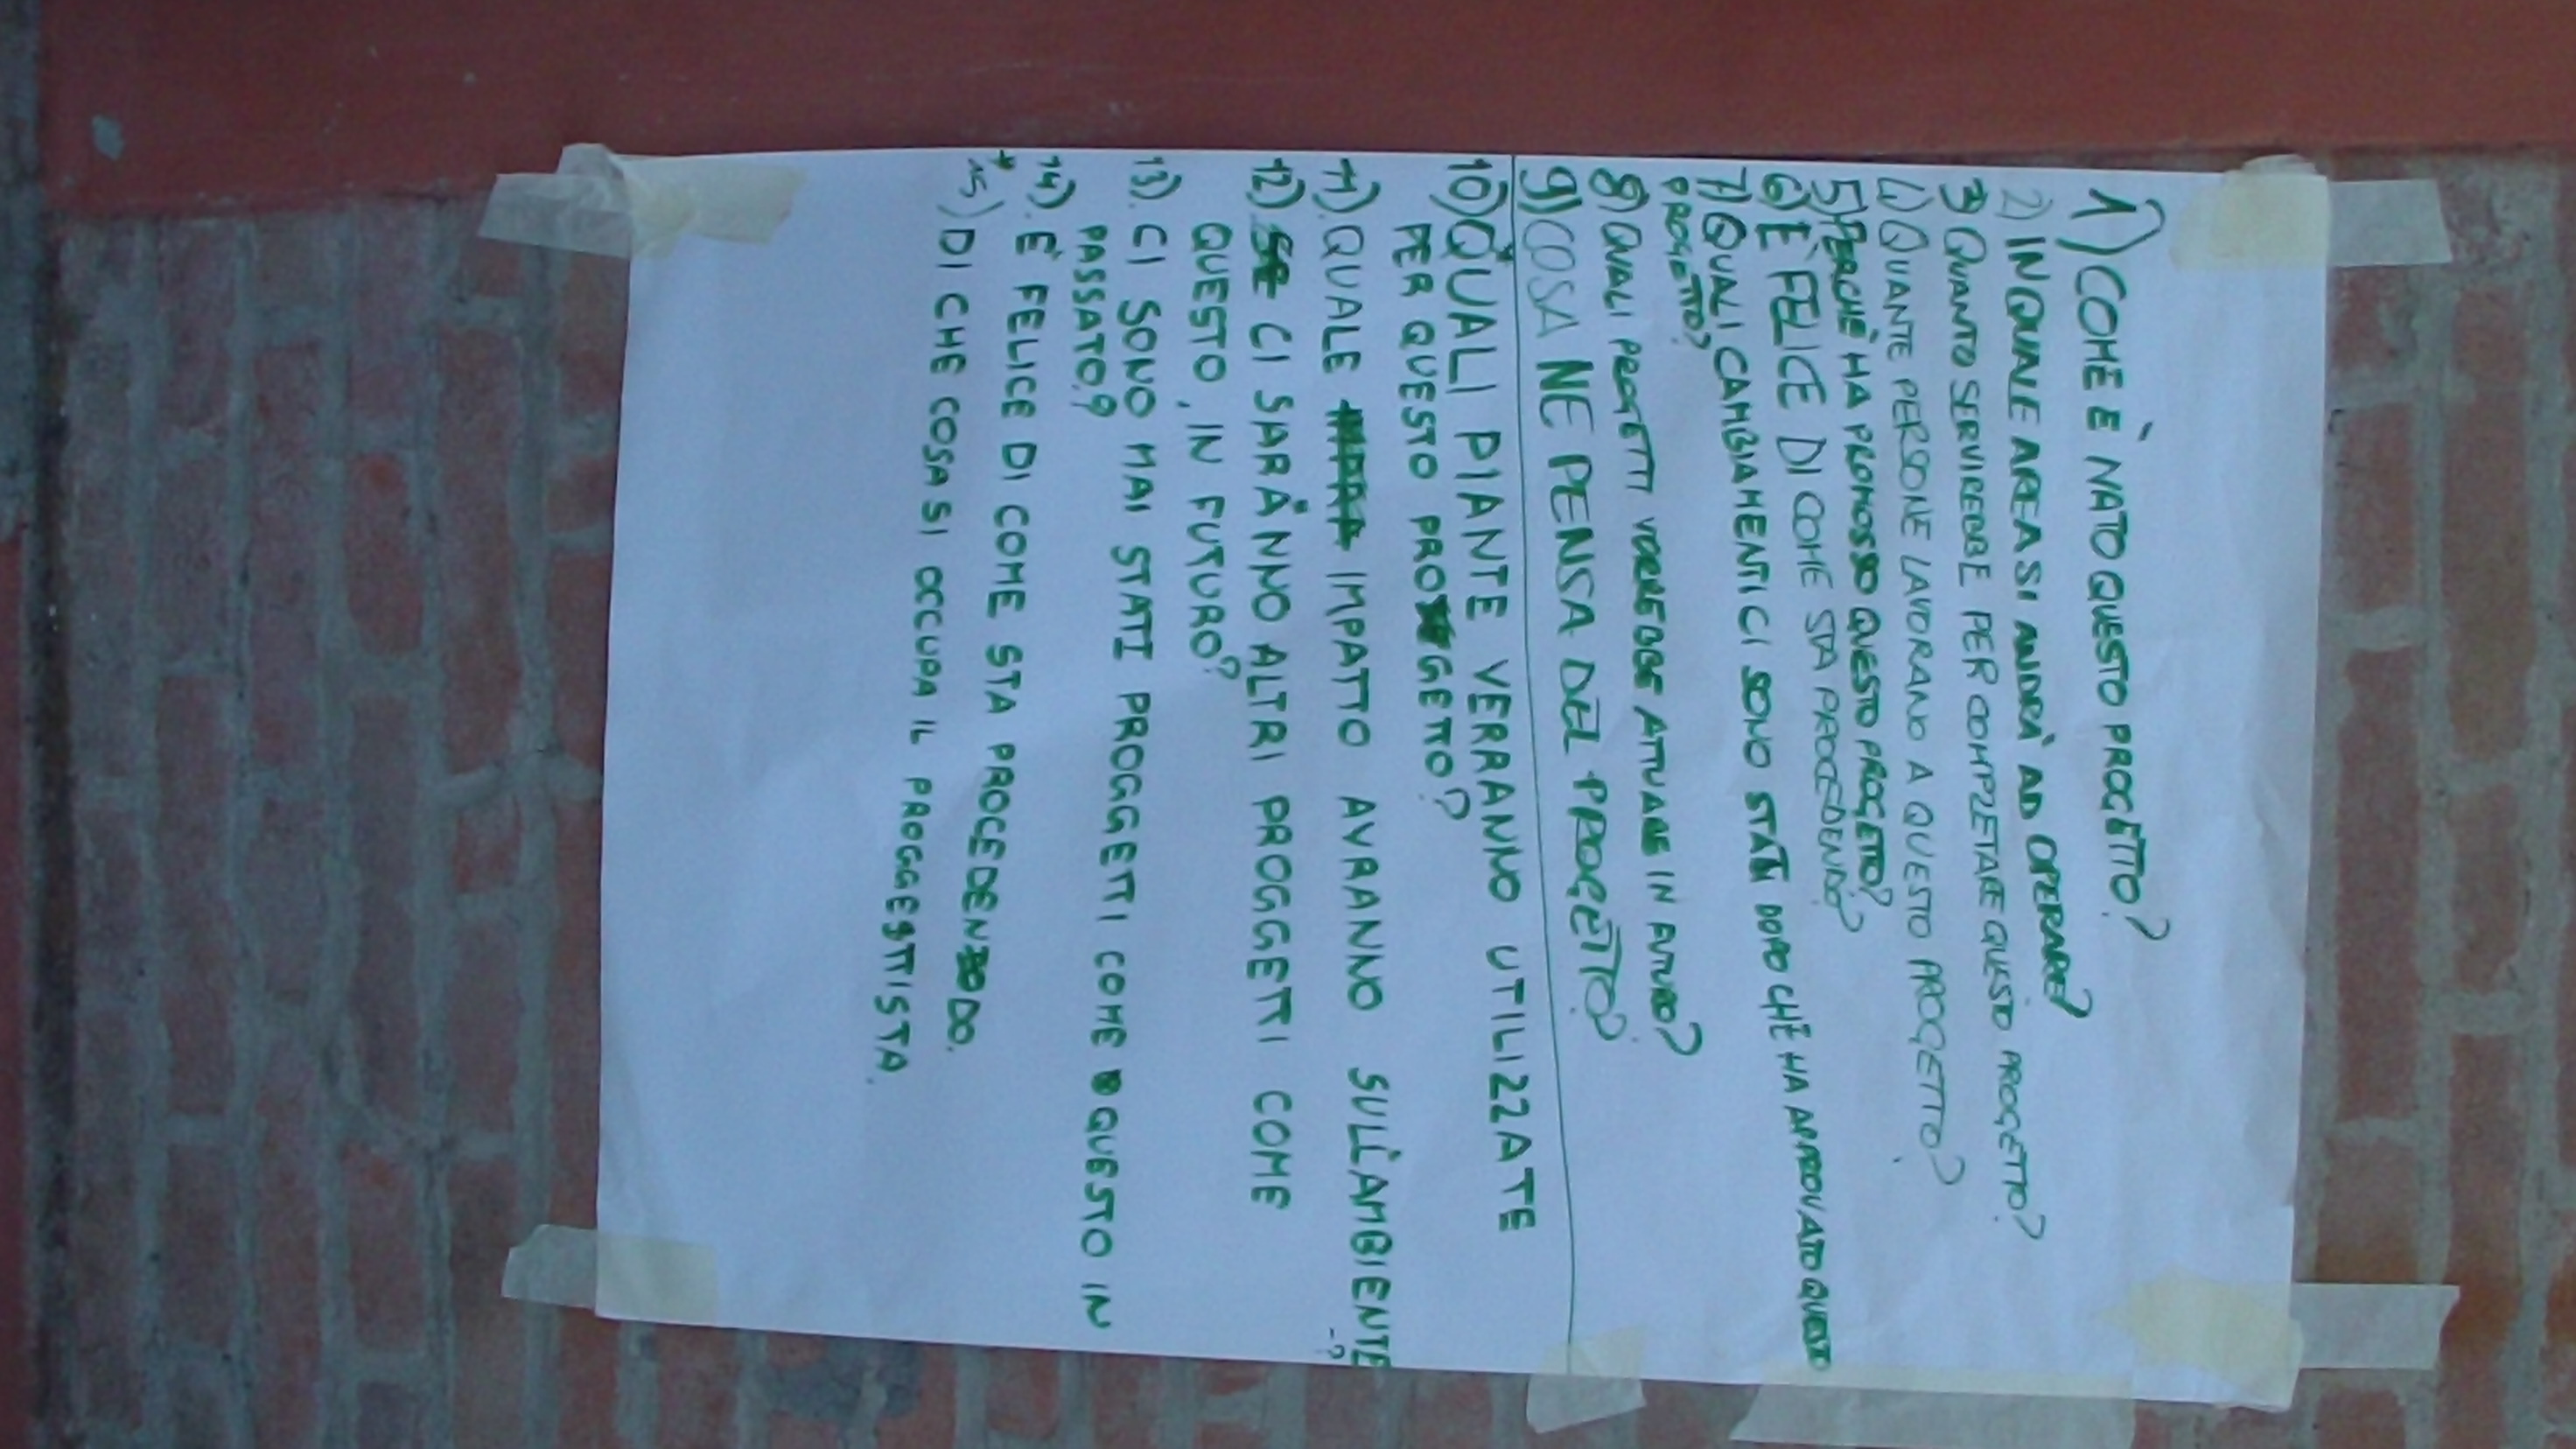 1) COME È NATO QUESTO PROGETTO?
2) IN QUALE AREA SI ANDRÀ AD OPERARE?
3) QUANTO SERVIREBBE PER COMPLETARE QUESTO PROGETTO?
4) QUANTE PERSONE LAVORANO A QUESTO PROGETTO?
5) PERCHÈ HA PROMOSSO QUESTO PROGETTO?
6) È FELICE DI COME STA PROCEDENDO?
7) QUALI CAMBIAMENTI CI SONO STATI DOPO CHE HA APPROVATO QUESTO
PROGETTO?
8) QUALI PROGETTI VORREBBE ATTUARE IN FUTURO?
9) COSA NE PENSA DEL PROGETTO?
10) QUALI PIANTE VERRANNO UTILIZZATE
PER QUESTO PROGETTO?
11). QUALE IMPATTO AVRANNO SULL'AMBIENTE
-?
12). SE CI SARANNO ALTRI PROGGETTI COME
QUESTO, IN FUTURO?
13). CI SONO MAI STATI PROGGETTI COME QUESTO IN
PASSATO?
14). È FELICE DI COME STA PROCEDENDO.
* 15) DI CHE COSA SI OCCUPA IL PROGGESTTISTA.